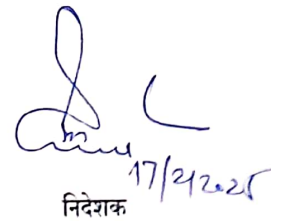 17/2/2025
निदेशक